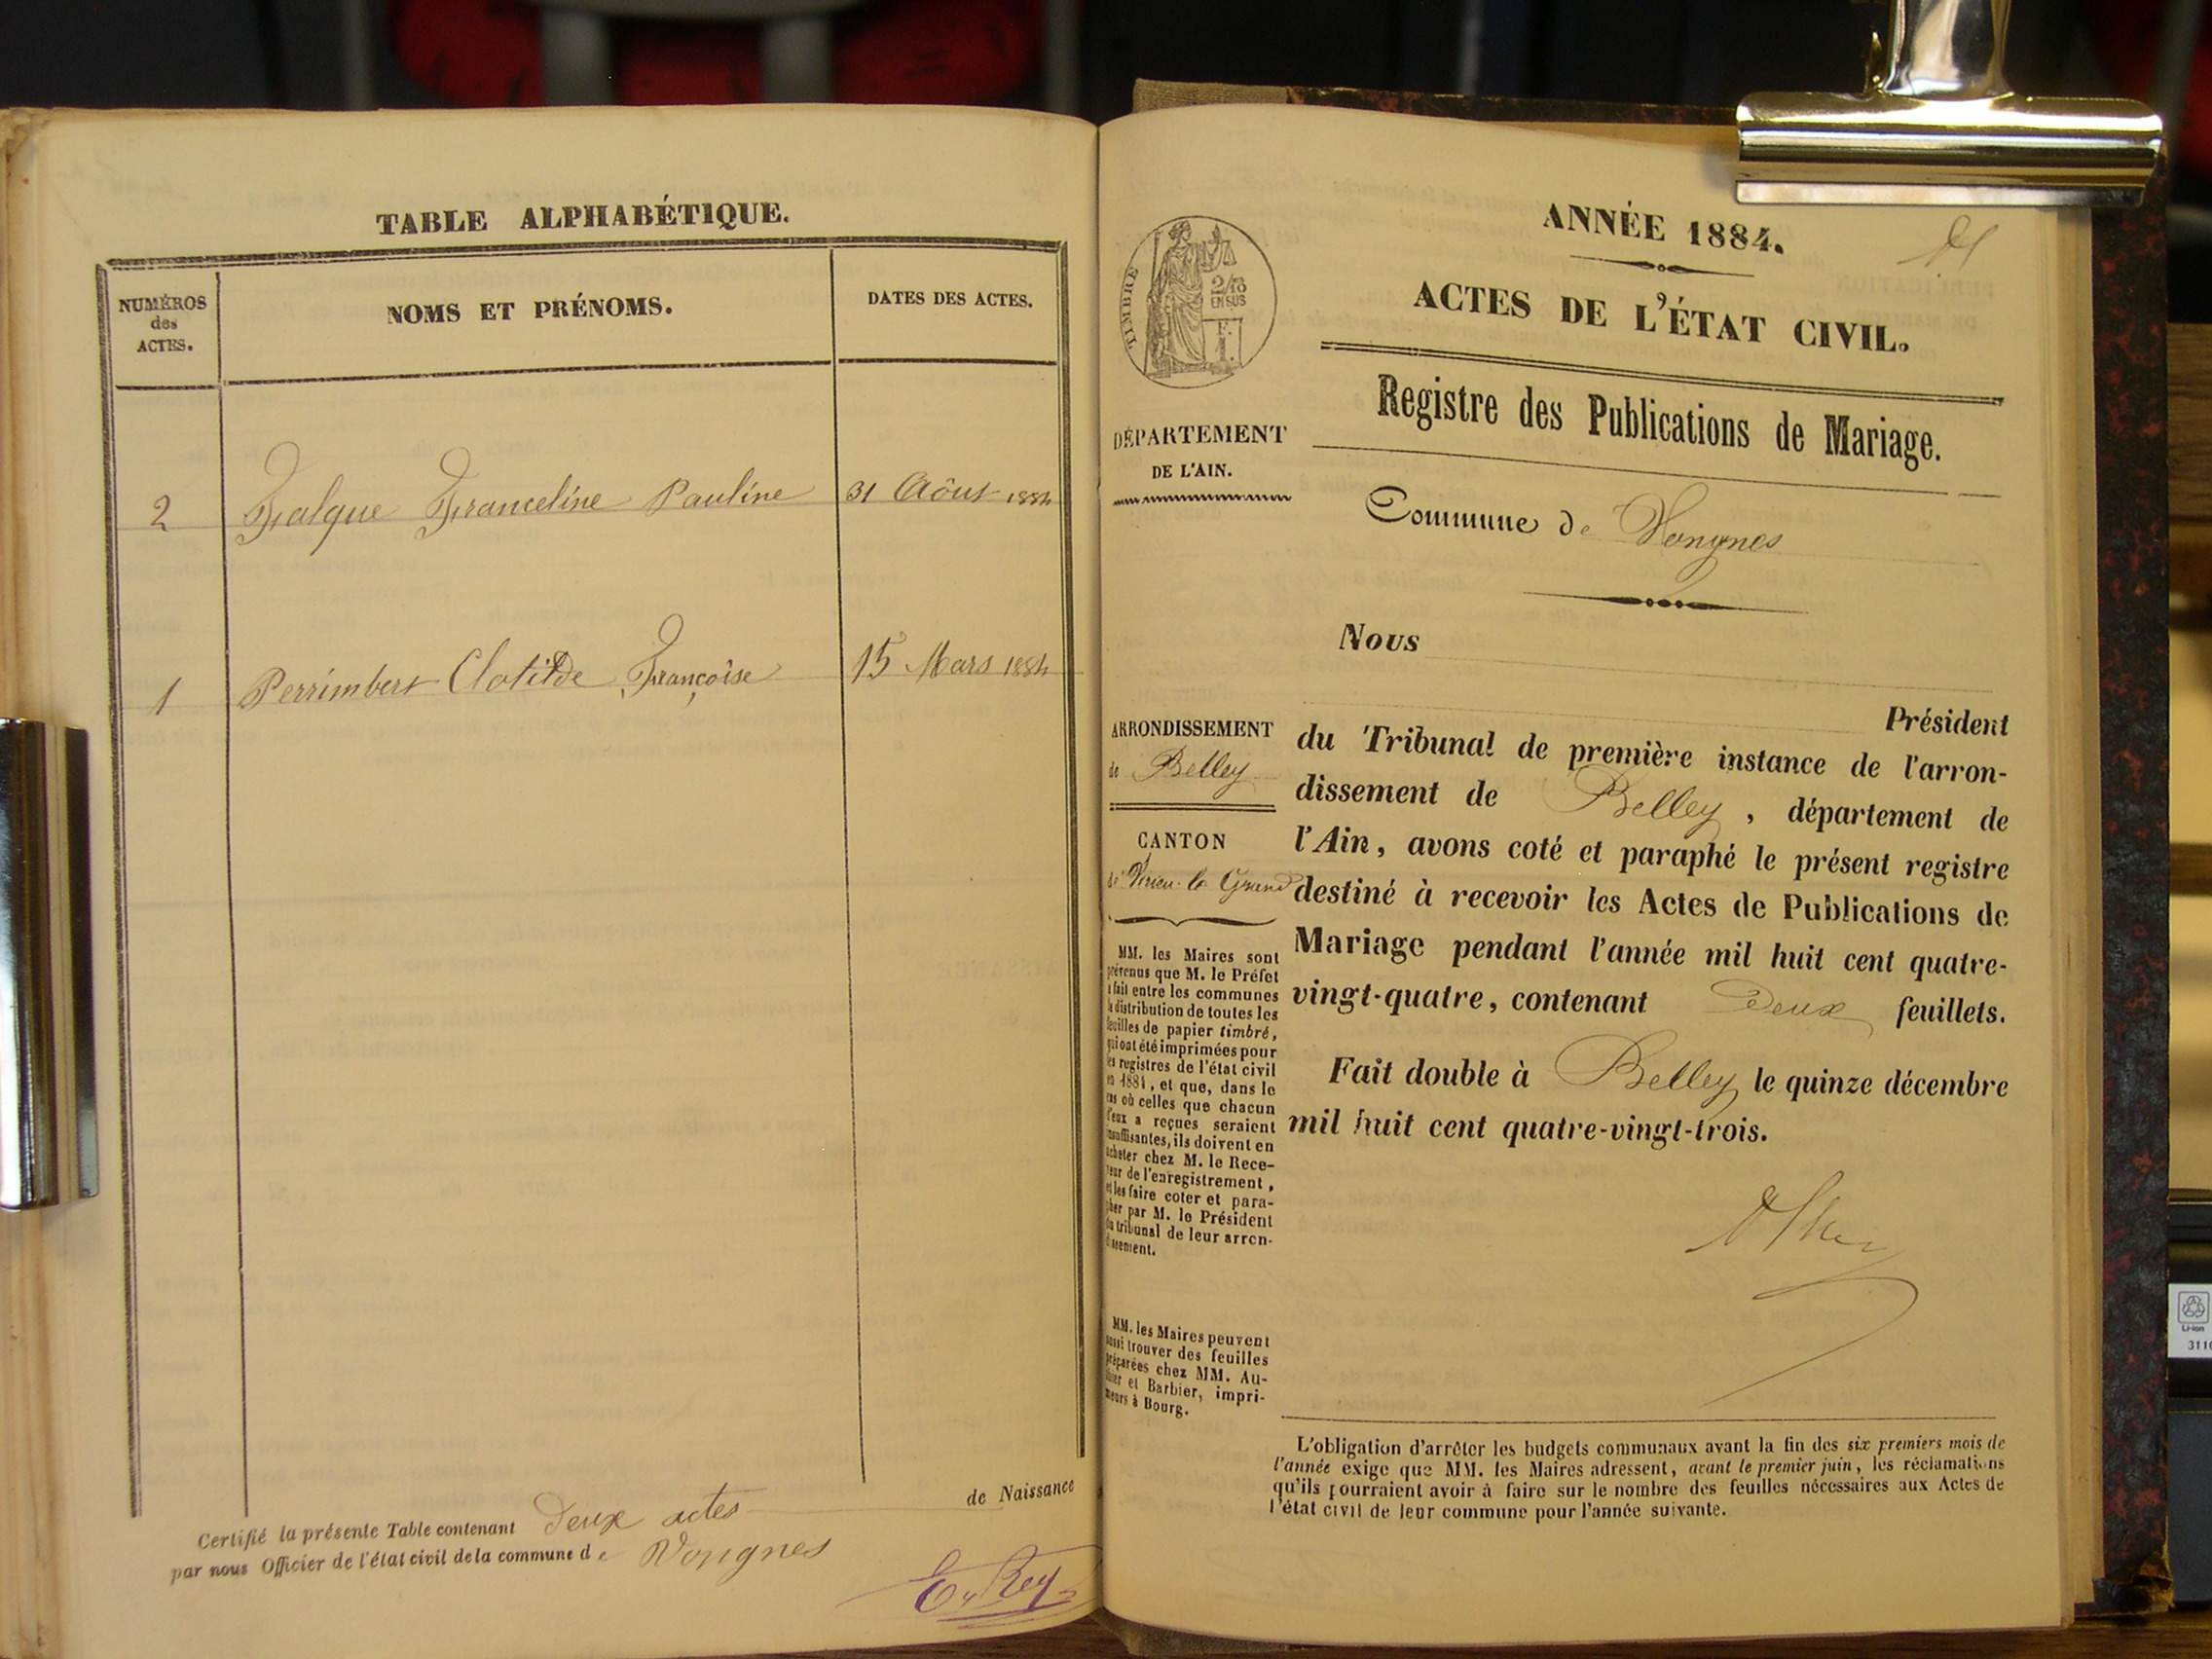 TABLE ALPHABÉTIQUE.
NUMÉROS
des
ACTES.
NOMS ET PRÉNOMS.
DATES DES ACTES.
2 Falque Franceline Pauline 31 Aôut 1884
1 Perrimbert Clotilde Françoise 15 Mars 1884
Certifié la présente Table contenant deux actes de Naissance
par nous Officier de l'état civil de la commune de Vongnes
E. Rey
ANNÉE 1884.
ACTES DE L'ÉTAT CIVIL.
Registre des Publications de Mariage.
TIMBRE
2/10
EN SUS
DÉPARTEMENT
DE L'AIN.
Commune de Vongnes
Nous
Président
ARRONDISSEMENT
de Belley
CANTON
de Virieu-le Grand
du Tribunal de première instance de l'arron-
dissement de Belley, département de
l'Ain, avons coté et paraphé le présent registre
destiné à recevoir les Actes de Publications de
Mariage pendant l'année mil huit cent quatre-
vingt-quatre, contenant Deux feuillets.
Fait double à Belley le quinze décembre
mil huit cent quatre-vingt-trois.
MM. les Maires sont
prévenus que M. le Préfet
a fait entre les communes
la distribution de toutes les
feuilles de papier timbré,
qui ont été imprimées pour
les registres de l'état civil
en 1884, et que, dans le
cas où celles que chacun
d'eux a reçues seraient
insuffisantes, ils doivent en
acheter chez M. le Rece-
veur de l'enregistrement,
et les faire coter et para-
pher par M. le Président
du tribunal de leur arron-
dissement.
MM. les Maires peuvent
aussi trouver des feuilles
préparées chez MM. Au-
thier et Barbier, impri-
meurs à Bourg.
L'obligation d'arrêter les budgets communaux avant la fin des six premiers mois de
l'année exige que MM. les Maires adressent, avant le premier juin, les réclamations
qu'ils pourraient avoir à faire sur le nombre des feuilles nécessaires aux Actes de
l'état civil de leur commune pour l'année suivante.
Li-ion